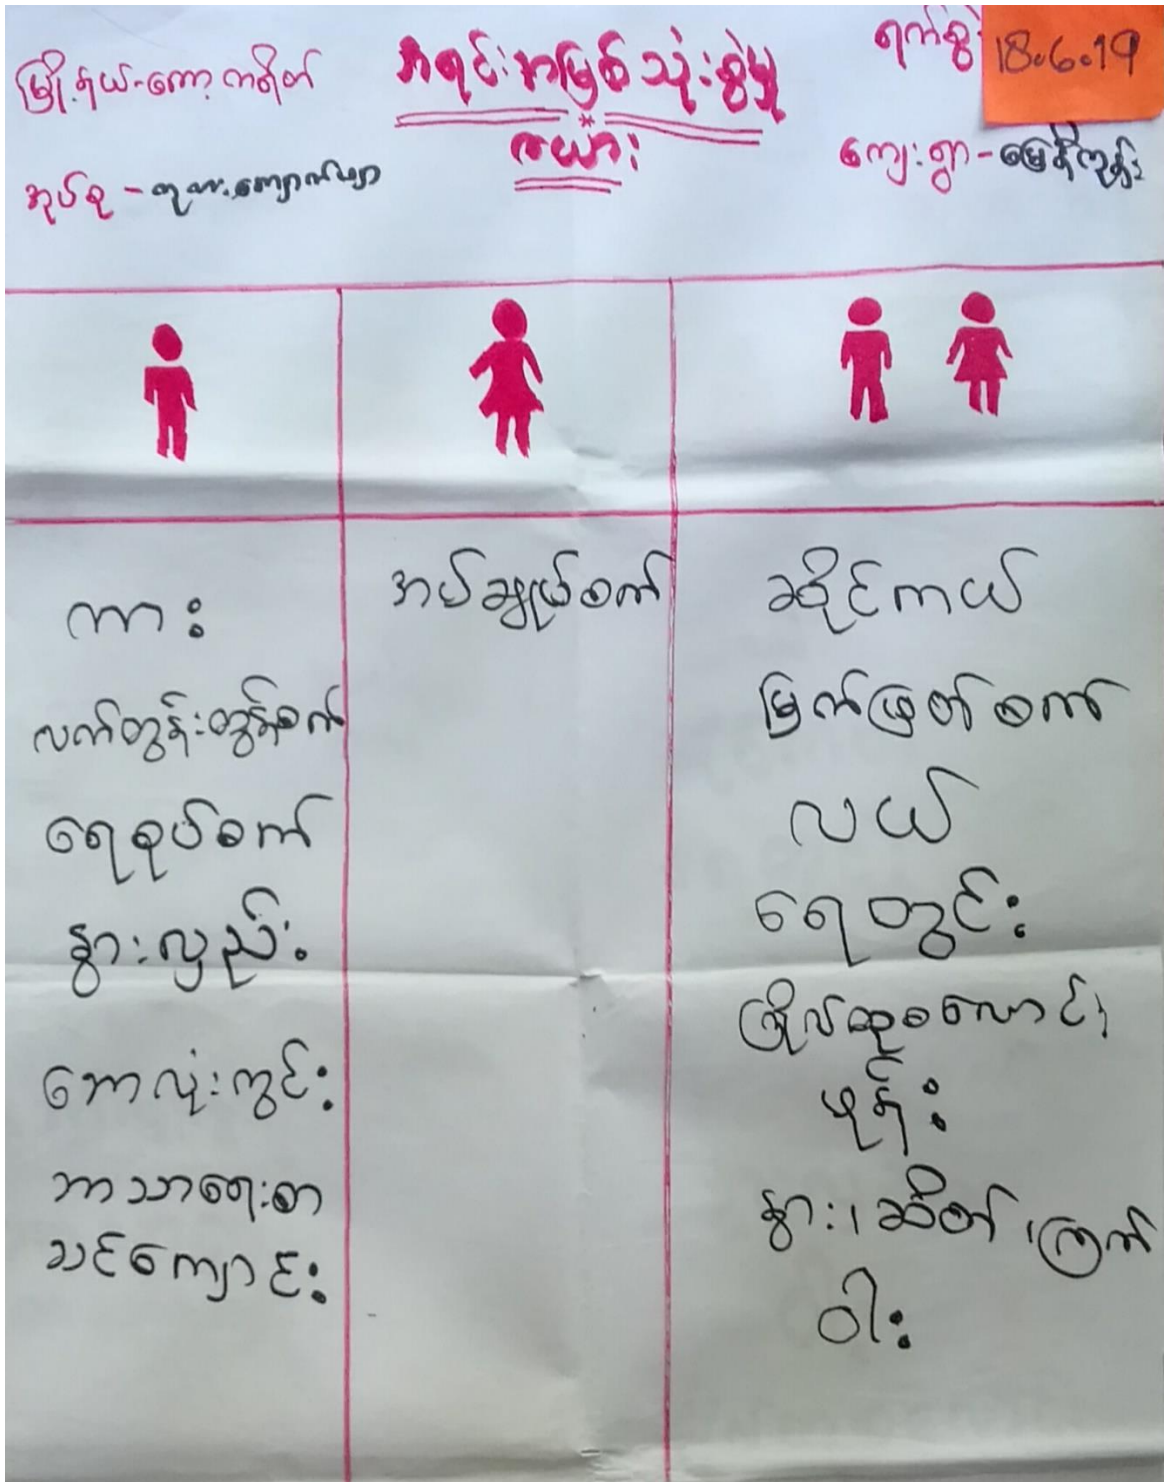 မြို့နယ်-ကော့ကရိတ်
အရင်းအမြစ်သုံးစွဲမှု
ဇယား
ရက်စွဲ 18.6.19
အုပ်စု -
ကျေးရွာ-မြေနီကုန်း
ကား
လက်တွန်းထွန်စက်
ရေစုပ်စက်
နွားလှည်း
ဘောလုံးကွင်း
ဘာသာရေးစာ
သင်ကျောင်း
အပ်ချုပ်စက်
ဆိုင်ကယ်
မြက်ဖြတ်စက်
လယ်
ရေတွင်း
ဂြိုလ်တုစလောင်း
ဖုန်း
နွား၊ ဆိတ် ၊ကြက်
ဝါး